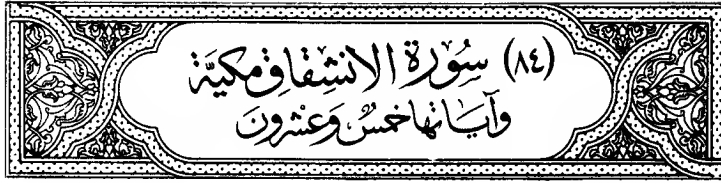 (٨٤) سُورَة الانشِقاق مكيَّة
وَآيَاتها خمسٌ وَعشرُونَ